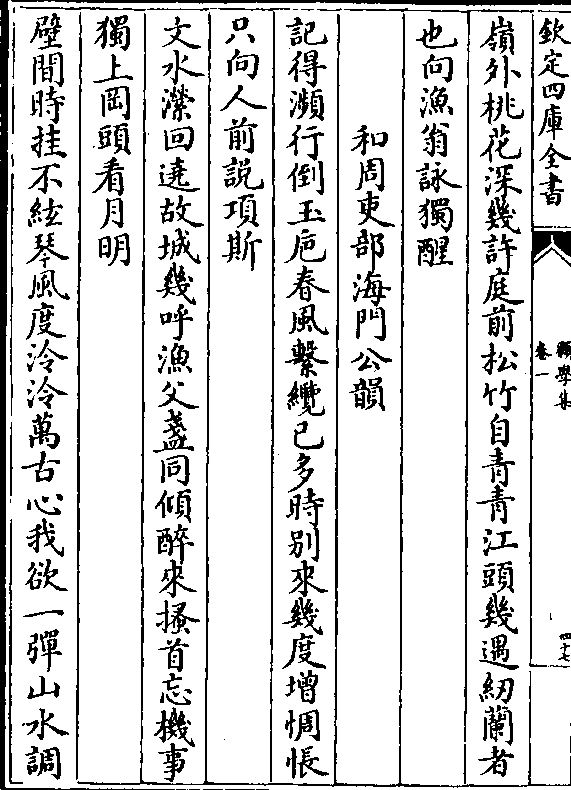 欽定四庫全書
願學集
卷一
四十七
嶺外桃花深幾許庭前松竹自青青江頭幾遇紉蘭者
也向漁翁詠獨醒
和周吏部海門公韻
記得瀕行倒玉巵春風繫纜已多時别來幾度增惆悵
只向人前説項斯
文水濚回遶故城幾呼漁父盞同傾醉來搔首忘機事
獨上岡頭看月明
壁間時挂不絃琴風度泠泠萬古心我欲一彈山水調